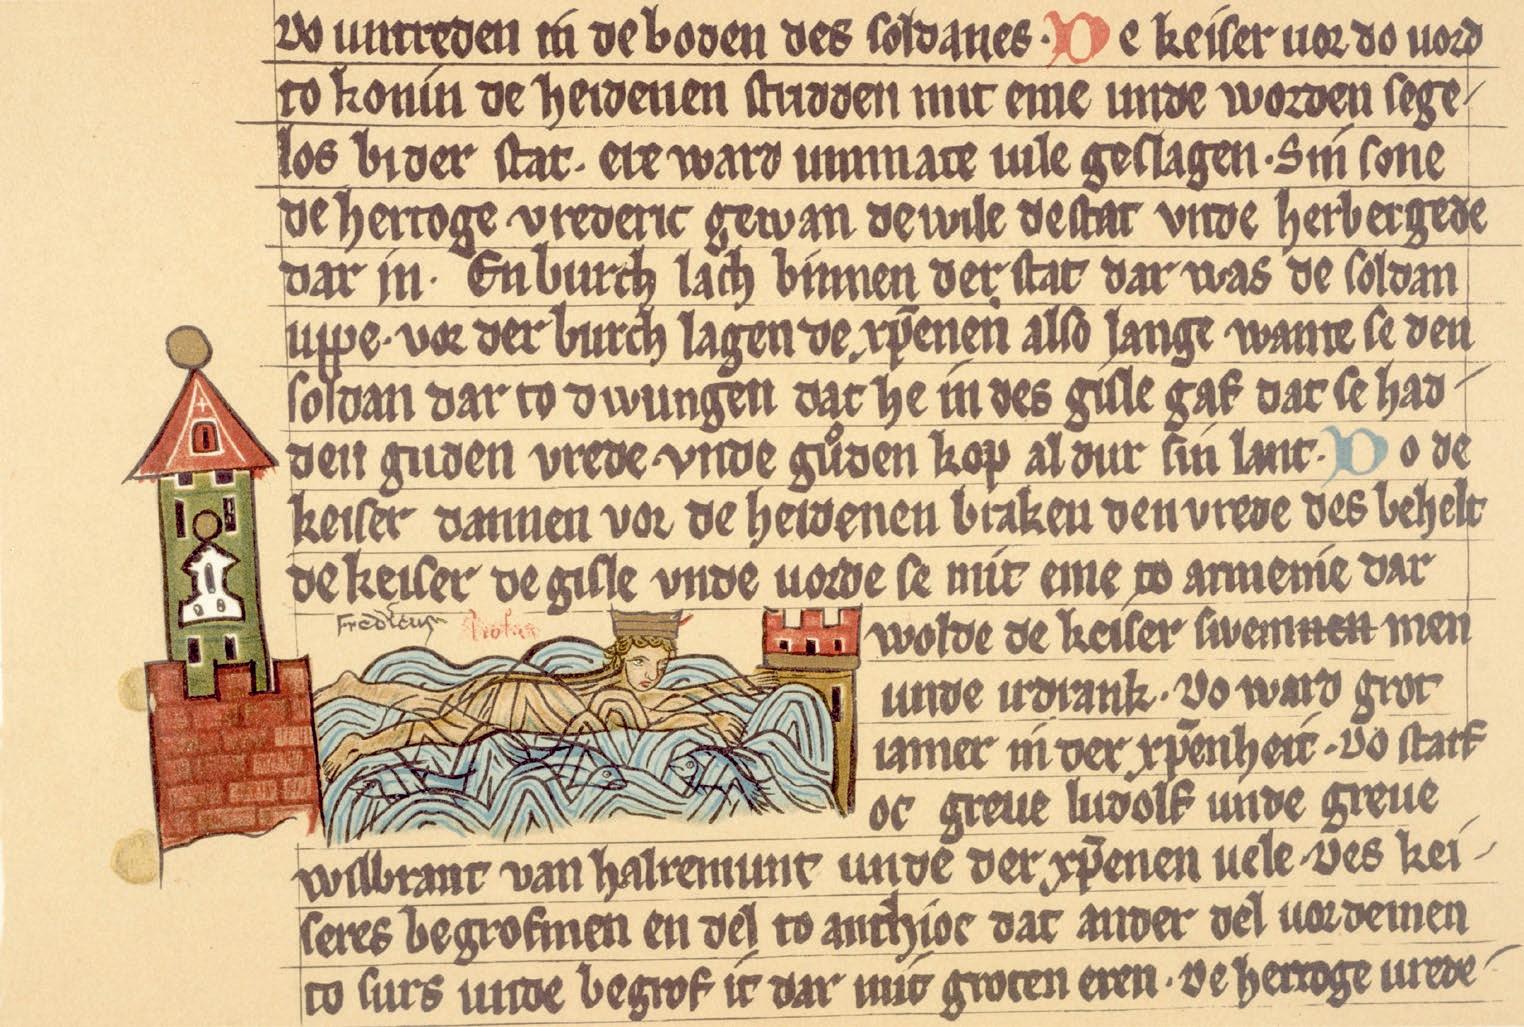 vo untreden in de boden des soldanes. De keiser vor do vord
to konin de heidenen studden mit eme unde worden sege
los bi der stat. ere ward ummate vile geslagen. Sin sone
de hertoge vrederic gewan de wile de stat vnde herbergede
dar in. En burch lach binnen der stat dar was de soldan
uppe. vor der burch lagen de xp̄enen also lange wante se den
soldan dar to dwungen dat he in des gisle gaf dat se had
den guden vrede. vnde gůden kop al dur sin lant. Do de
keiser dannen vor de heidenen braken den vrede des behelt
de keiser de gisle vnde vorde se mit eme to armenie dar
Fredericus
wolde de keiser swemmen men
unde irdrank. Do ward grot
iamer in der xp̄enheit. Do starf
oc greue ludolf unde greue
wilbrant van halremunt unde der xp̄enen vele. Des kei
seres begrof men en del to anthioc dat ander del vorde men
to surs unde begrof it dar mit groten eren. De hertoge vrede